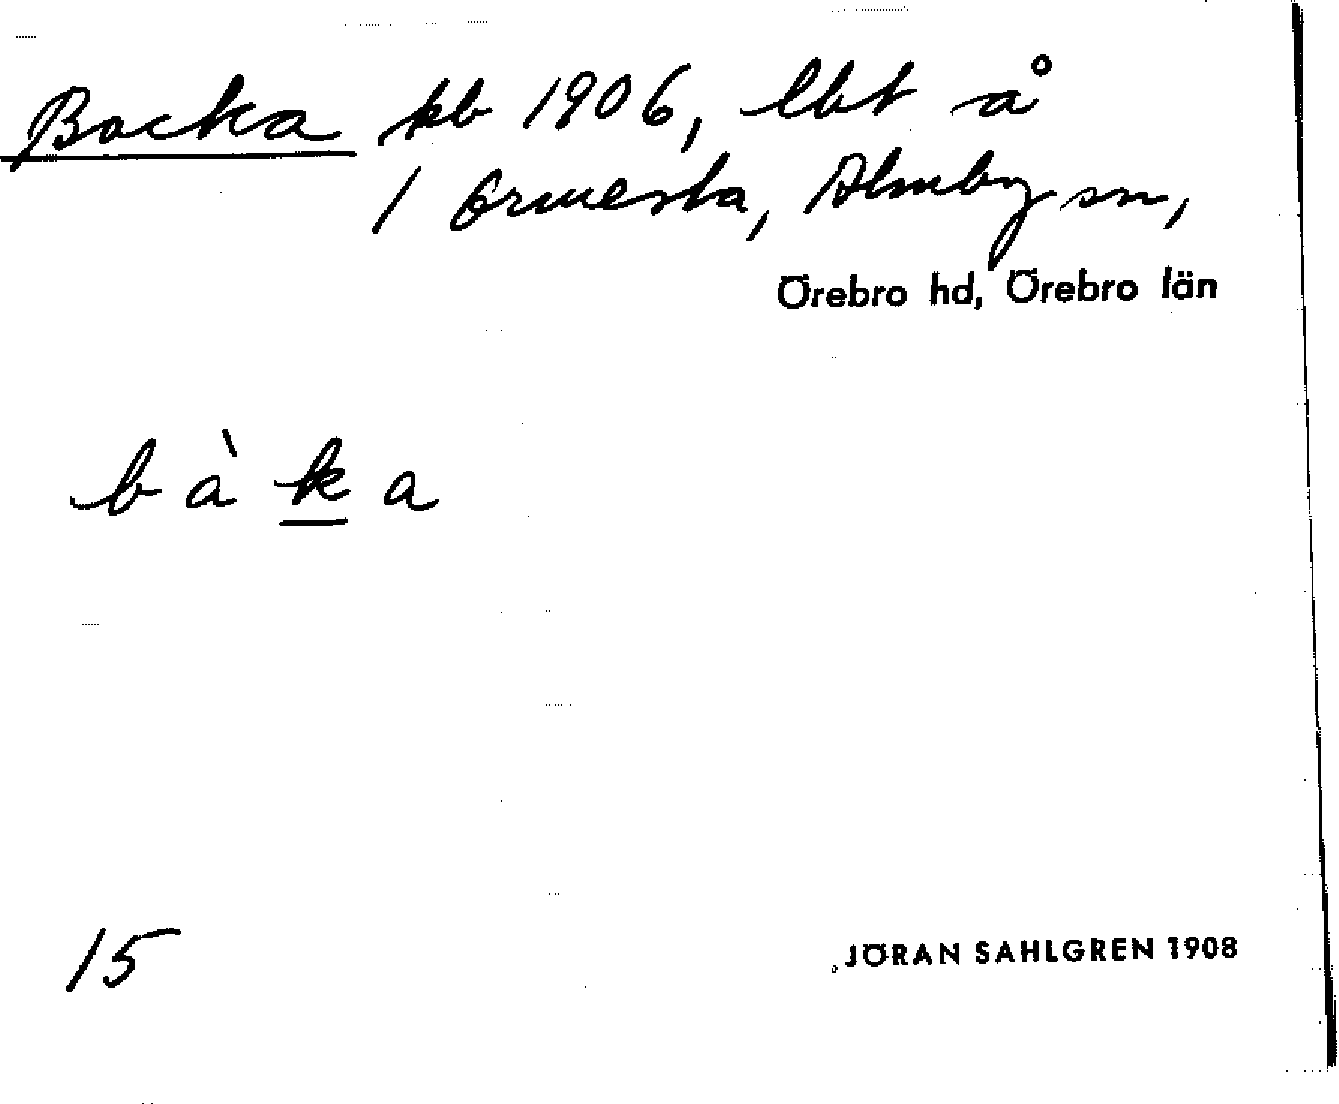 Backa kb 1906, lbt å
1 Ormesta, Almby sn,
Örebro hd, Örebro län
bàka
15
JÖRAN SAHLGREN 1908